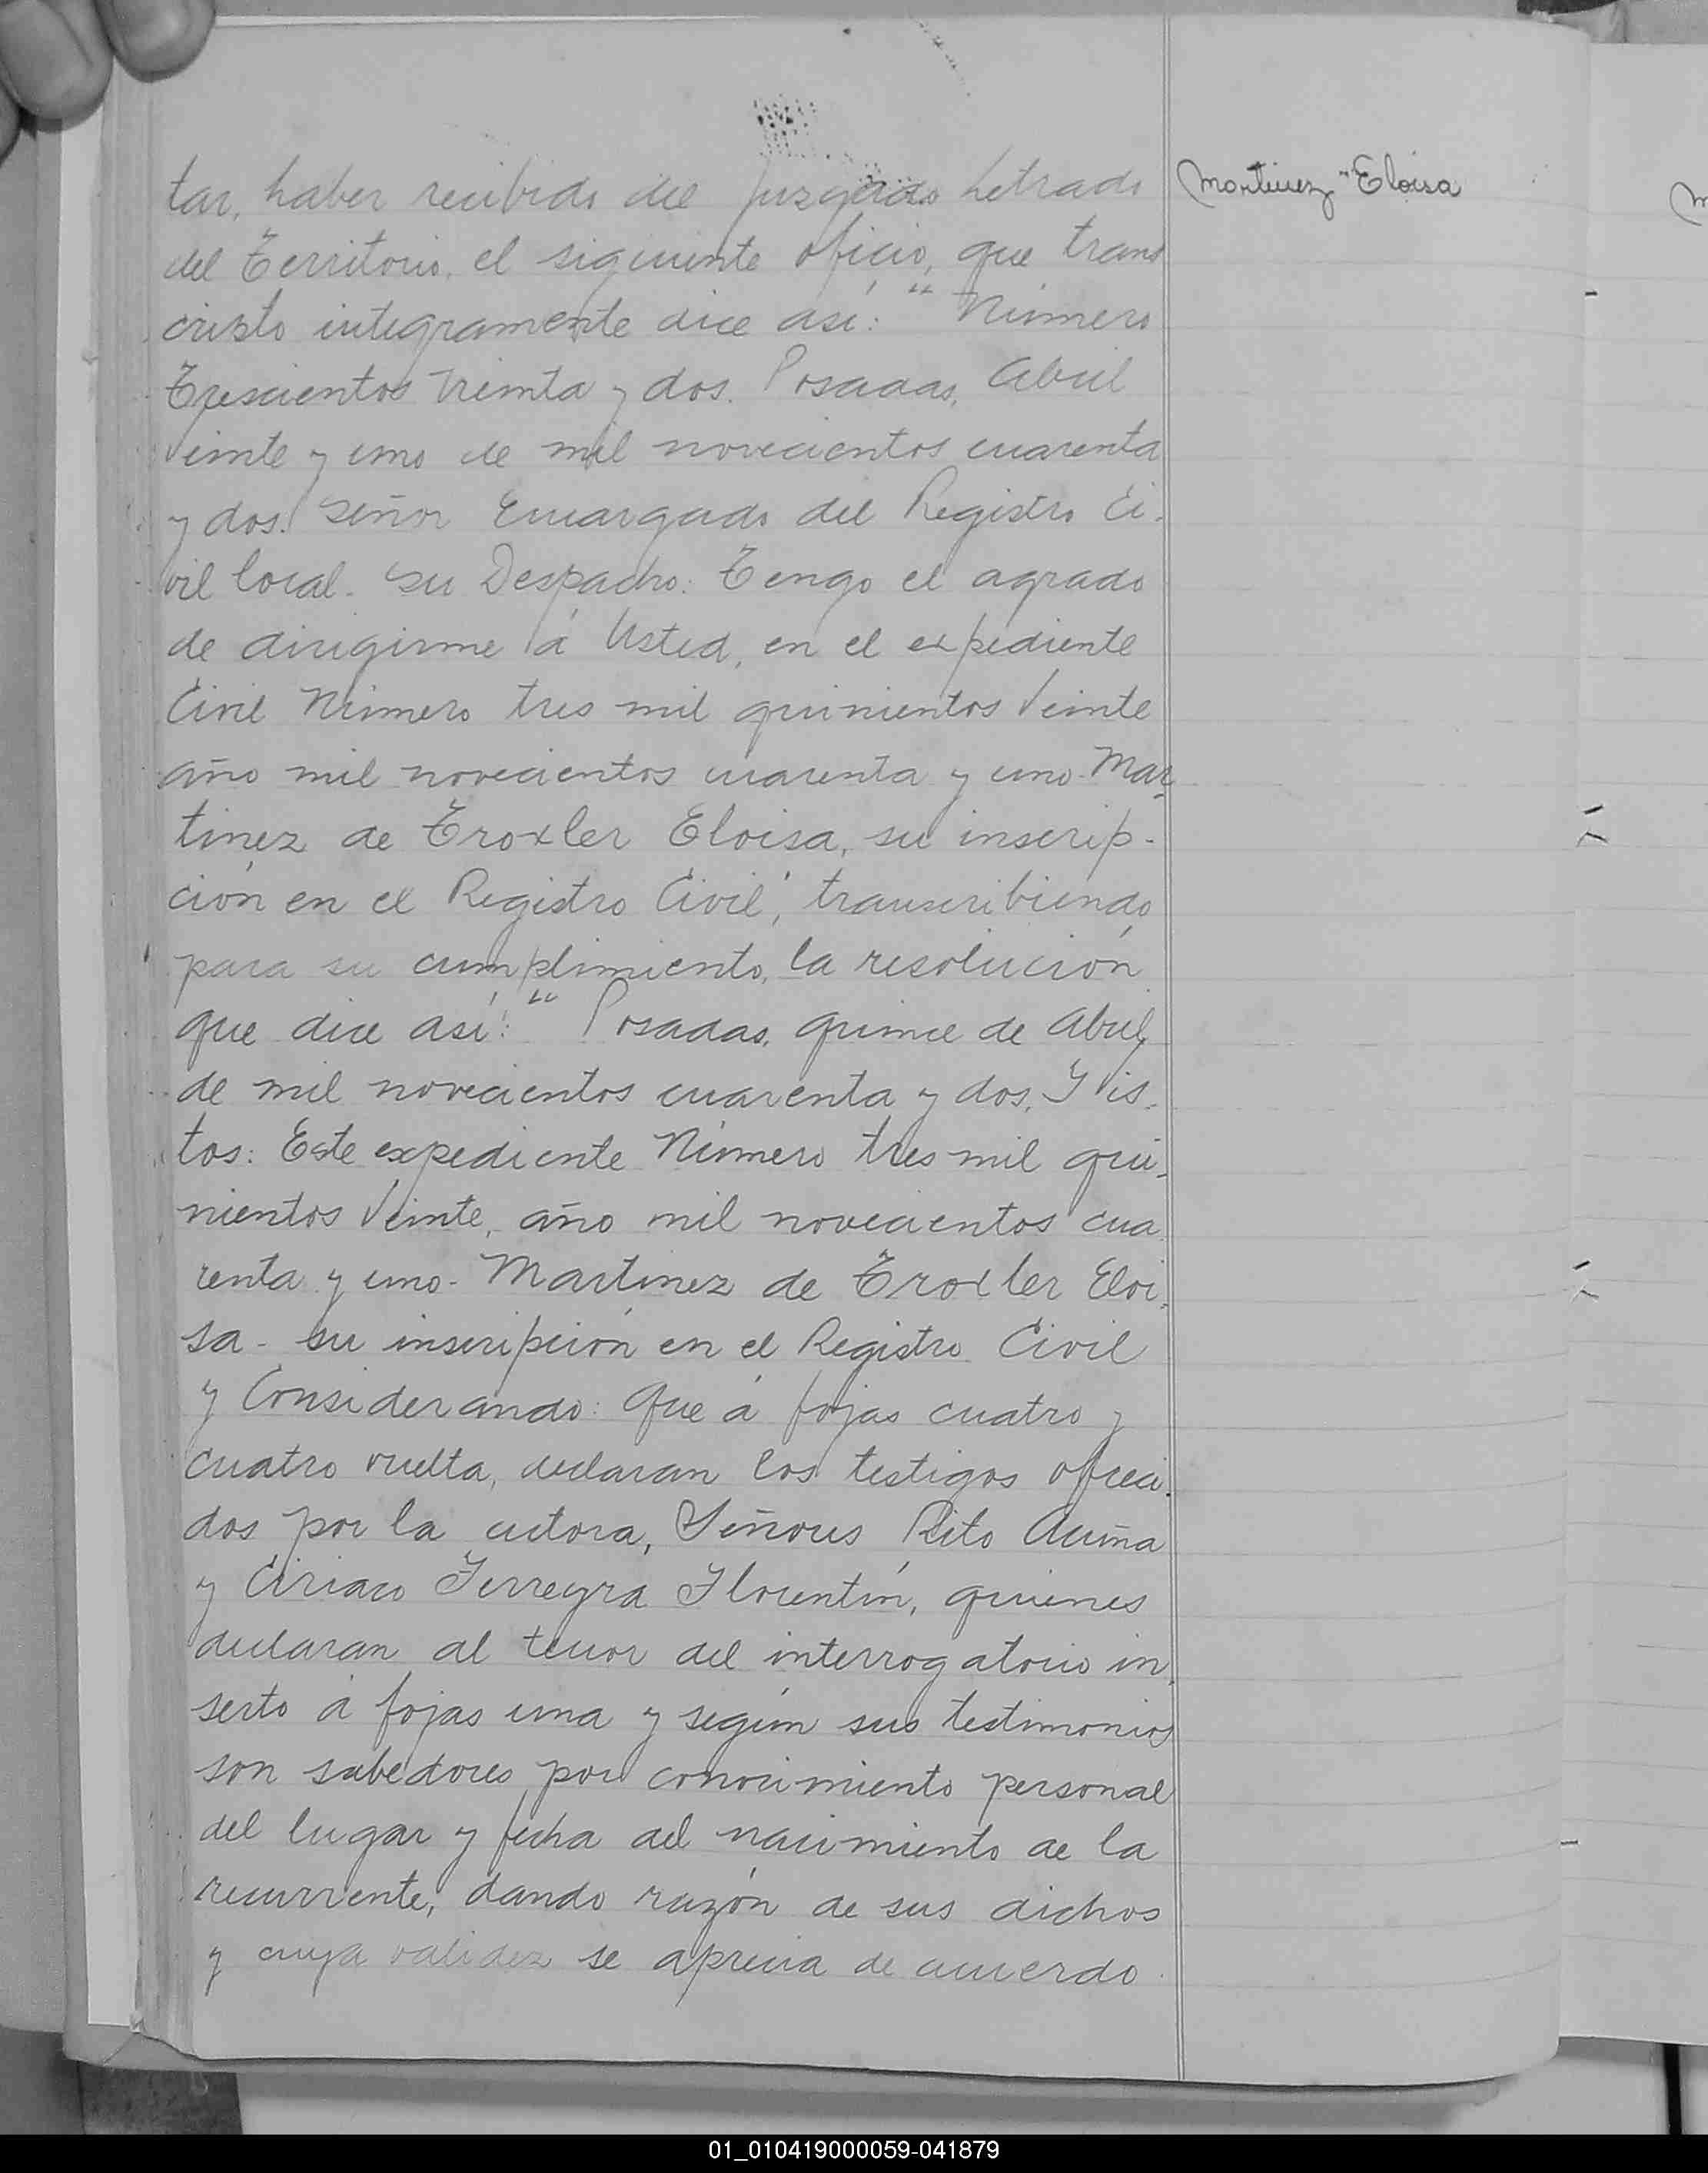 tar, haber recibido del Juzgado Letrado
Martinez - Eloisa
del Territorio, el siguiente oficio, que trans
cripto integramente dice así: " Número
Trescientos treinta y dos. Posadas, Abril
Veinte y uno de mil novecientos cuarenta
y dos. Señor Encargado del Registro Ci-
vil local - Su Despacho: Tengo el agrado
de dirigirme á Usted, en el expediente
Civil Número tres mil quinientos Veinte
año mil novecientos cuarenta y uno - Mar
tinez de Troxler Eloisa, su inscrip-
ción en el Registro Civil, transcribiendo
para su cumplimiento, la resolución
que dice así: " Posadas, quince de Abril
de mil novecientos cuarenta y dos, Y Vis-
tos: Este expediente Número tres mil qui-
nientos Veinte, año mil novecientos cua
renta y uno - Martinez de Troxler Eloi-
sa - su inscripción en el Registro Civil
y Considerando: Que á fojas cuatro y
cuatro vuelta, declaran los testigos ofreci-
dos por la autora, Señores Rito Acuña
y Ciriaco Ferreyra Florentín, quienes
declaran al tenor del interrogatorio in-
serto á fojas una y según sus testimonios
son sabedores por conocimiento personal
del lugar y fecha del nacimiento de la
recurrente, dando razón de sus dichos
y cuya validez se aprecia de acuerdo
01_010419000059-041879